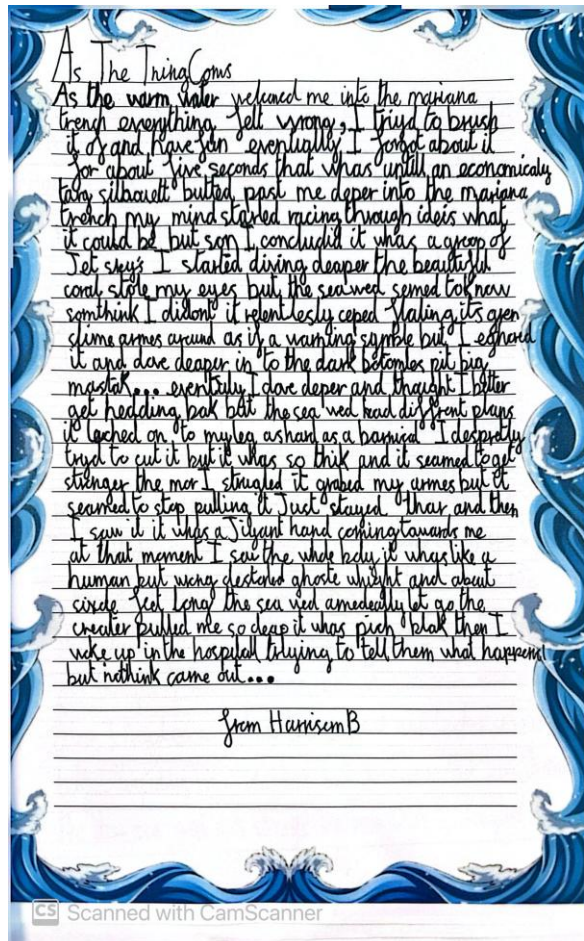 As The Thing Coms
As the warm water welcmed me into the mariana
trench everything felt wrong, I triyd to brush
it of and have fun eventually I forgot about it
for about five seconds that whas untill an economicaly
larg silhouett bulted past me deper into the mariana
trench my mind started racing through ideis what
it could be but son I concludid it whas a groop of
Jet skys I started diving deaper the beautiful
coral stole my eyes but the sea wed semed to know
somthink I didont it relentlesly ceped flaling its gren
slime armes around as if a warning symble but I egnored
it and dove deaper in to the dark botomles pit big
mastak... eventuly I dove deper and thaught I better
get hedding bak but the sea wed had diffrent plans
it lached on to my leg as hard as a barnical I despratly
tryd to cut it but it whas so thik and it seamed to get
stronger the mor I strugled it grabed my armes but it
seamed to stop pulling it Just stayed thar and then
I saw it it whas a Jiyant hand coming towards me
at that moment I saw the whole body it whas like a
human but wrong destorted ghoste whight and about
feet long the sea wed amedeatly let go the
creater pulled me so deap it whas pich blak then I
woke up in the hospitall tryying to tell them what happend
but nothink came out...
from Harrisom B
CS Scanned with CamScanner